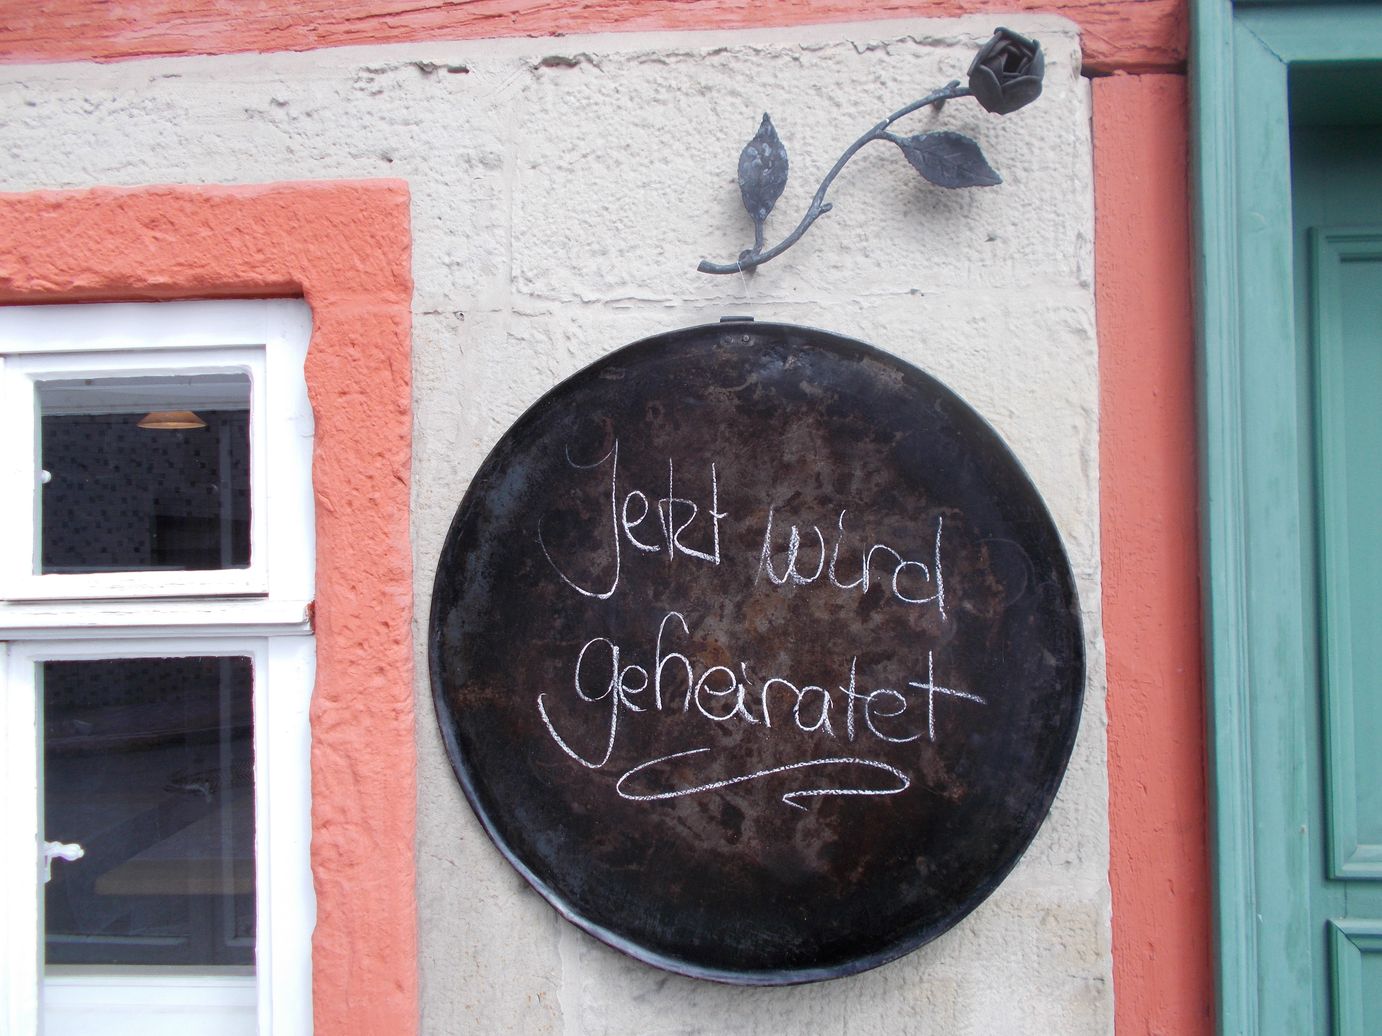 Jetzt wird
geheiratet